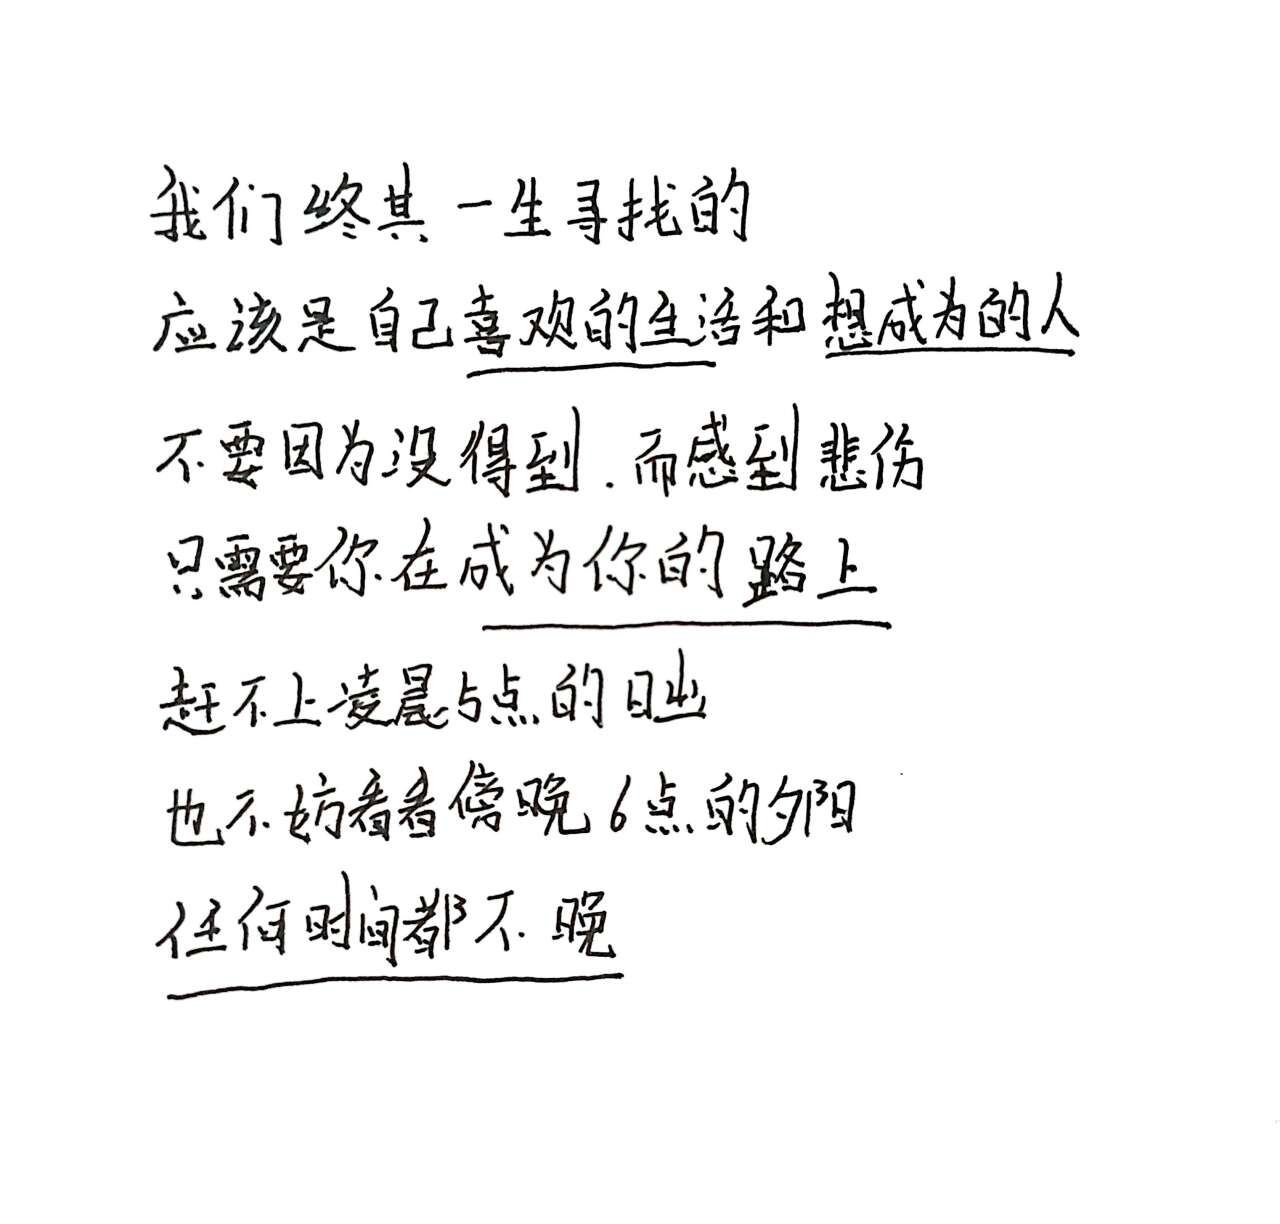 我们终其一生寻找的
应该是自己喜欢的生活和想成为的人
不要因为没得到.而感到悲伤
只需要你在成为你的路上
赶不上凌晨5点的日出
也不妨看看傍晚6点的夕阳
任何时间都不晚